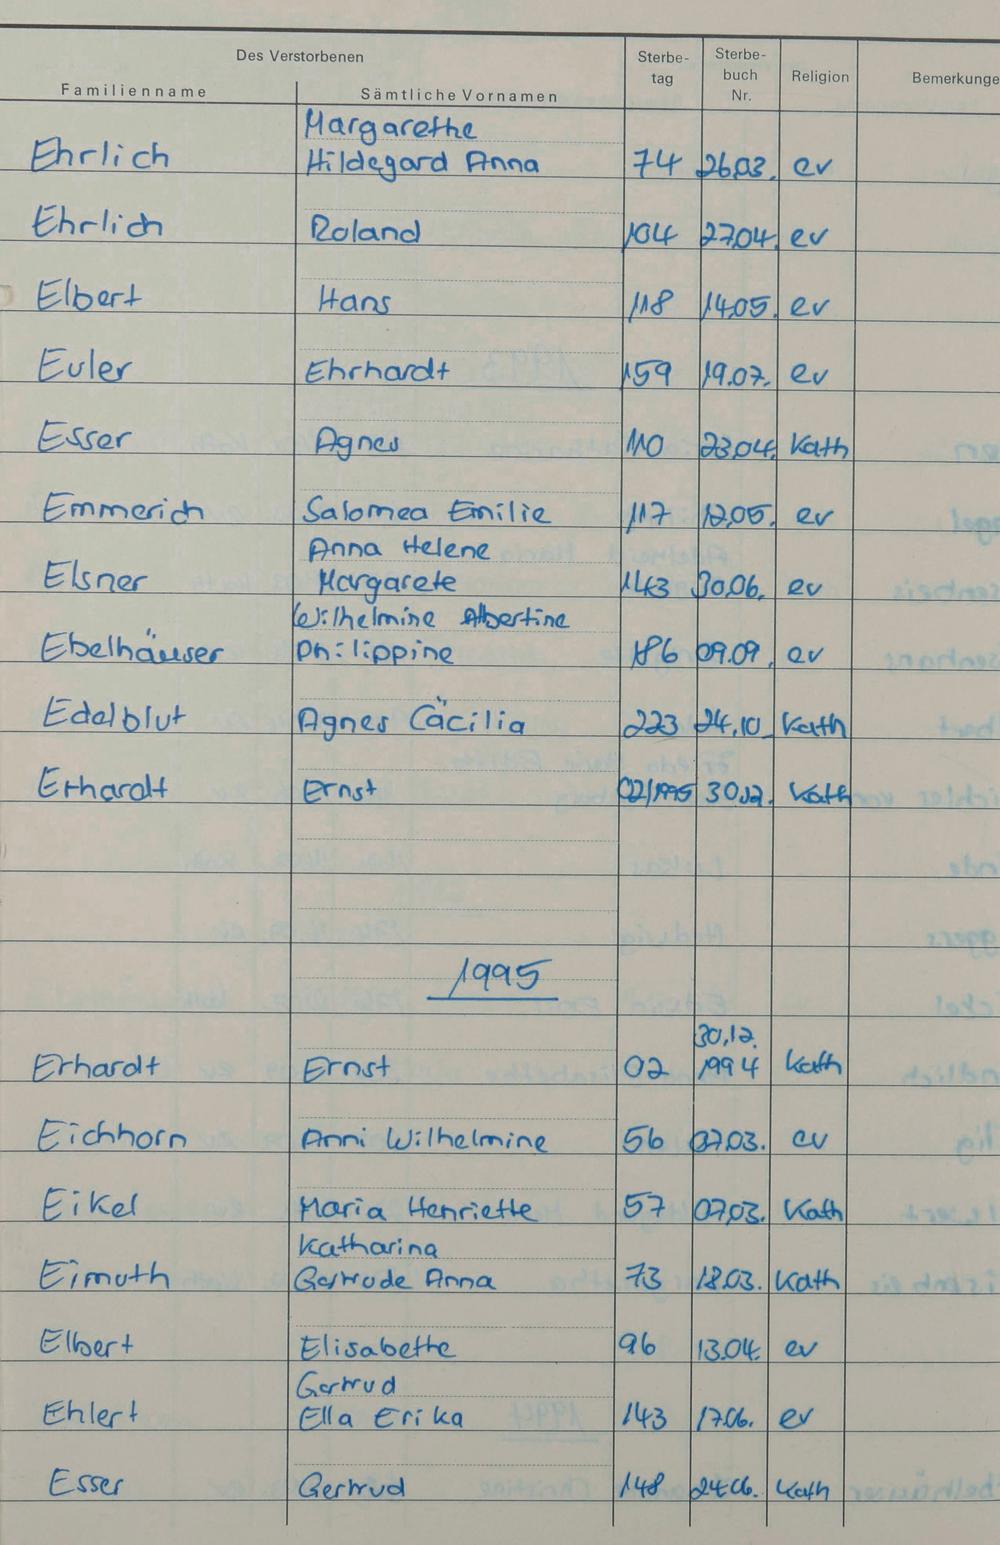 Des Verstorbenen
Familienname Sämtliche Vornamen Sterbe-tag Sterbe-buch Nr. Religion Bemerkunge
Margarethe
Ehrlich Hildegard Anna 74 26.03. ev
Ehrlich Roland 104 27.04. ev
Elbert Hans 118 14.05. ev
Euler Ehrhardt 159 19.07. ev
Esser Agnes 110 23.04. Kath
Emmerich Salomea Emilie 117 12.05. ev
Anna Helene
Elsner Margarete 143 30.06. ev
Wilhelmine Albertine
Ebelhäuser Philippine 186 09.09. ev
Edelblut Agnes Cäcilia 223 24.10. Kath
Erhardt Ernst 02/1995 30.12. Kath
1995
30.12.
Erhardt Ernst 02 1994 Kath
Eichhorn Anni Wilhelmine 56 07.03. ev
Eikel Maria Henriette 57 07.03. Kath
Katharina
Eimuth Gertrude Anna 73 18.03. Kath
Elbert Elisabethe 96 13.04. ev
Gertrud
Ehlert Ella Erika 143 17.06. ev
Esser Gertrud 148 24.06. Kath